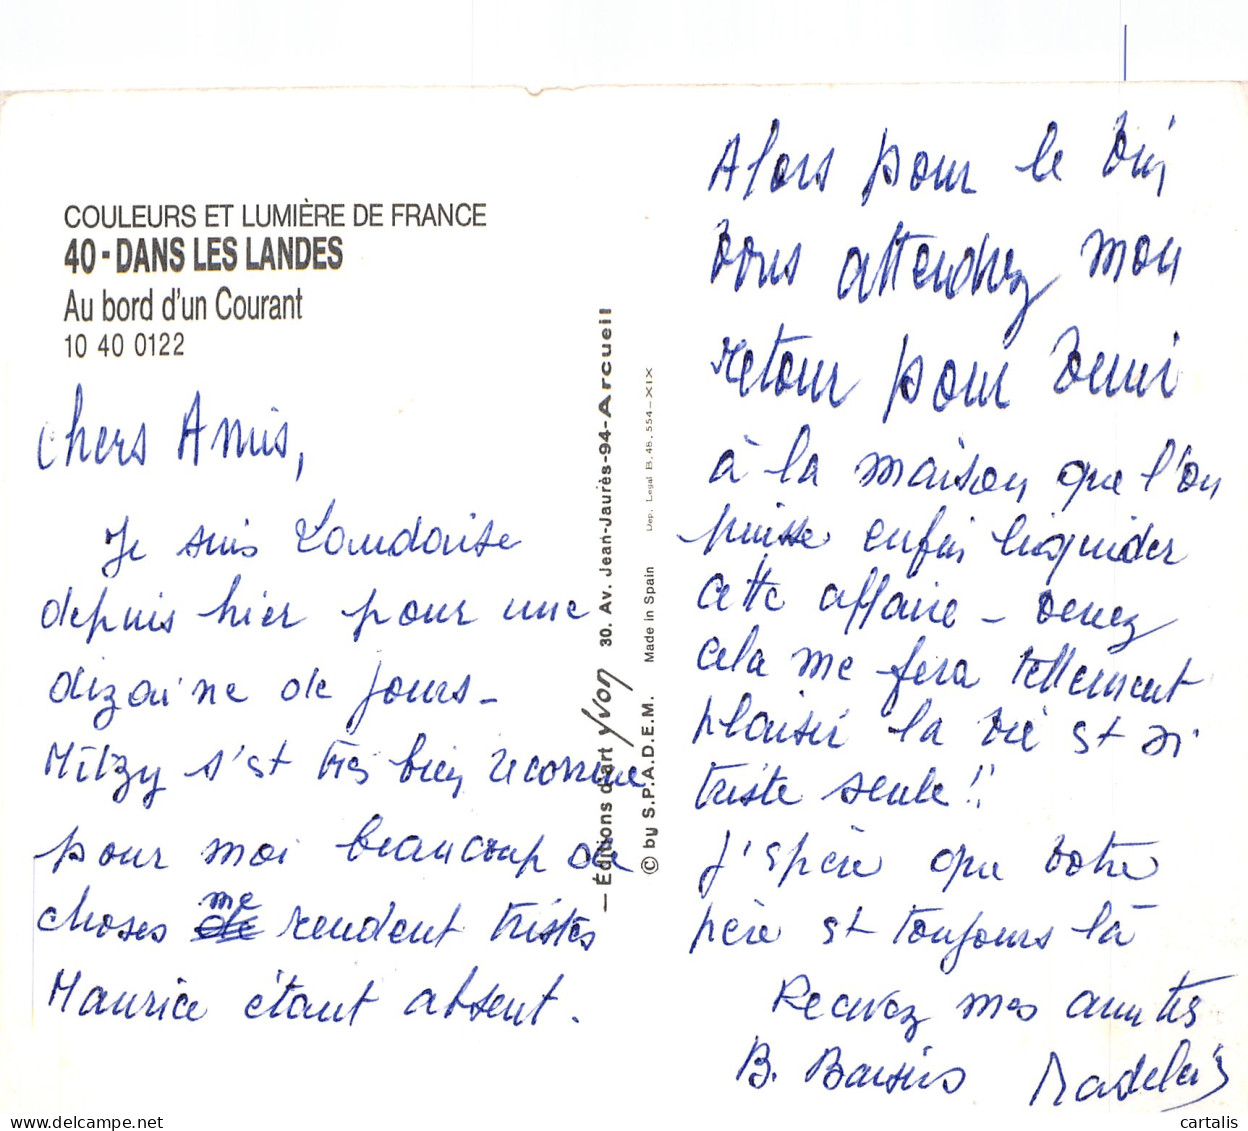 COULEURS ET LUMIÈRE DE FRANCE
40 - DANS LES LANDES
Au bord d'un Courant
10 40 0122
Chers Amis,
Je suis Landaise
depuis hier pour une
dizaine de jours -
Mitzy s'est très bien reconnue
pour moi beaucoup de
choses me rendent tristes
Maurice étant absent.
— Éditions d'art Yvon 30. Av. Jean-Jaurès-94-Arcueil
© by S.P.A.D.E.M. Made in Spain Dep. Legal B. 48.554-XIX
Alors pour le vin
vous attendrez mon
retour pour venir
à la maison que l'on
puisse enfin liquider
cette affaire - venez
cela me fera tellement
plaisir la vie est si
triste seule !!
J'espère que votre
père est toujours là
Recevez mes amitiés
B. Baisers Madeleine
cartalis